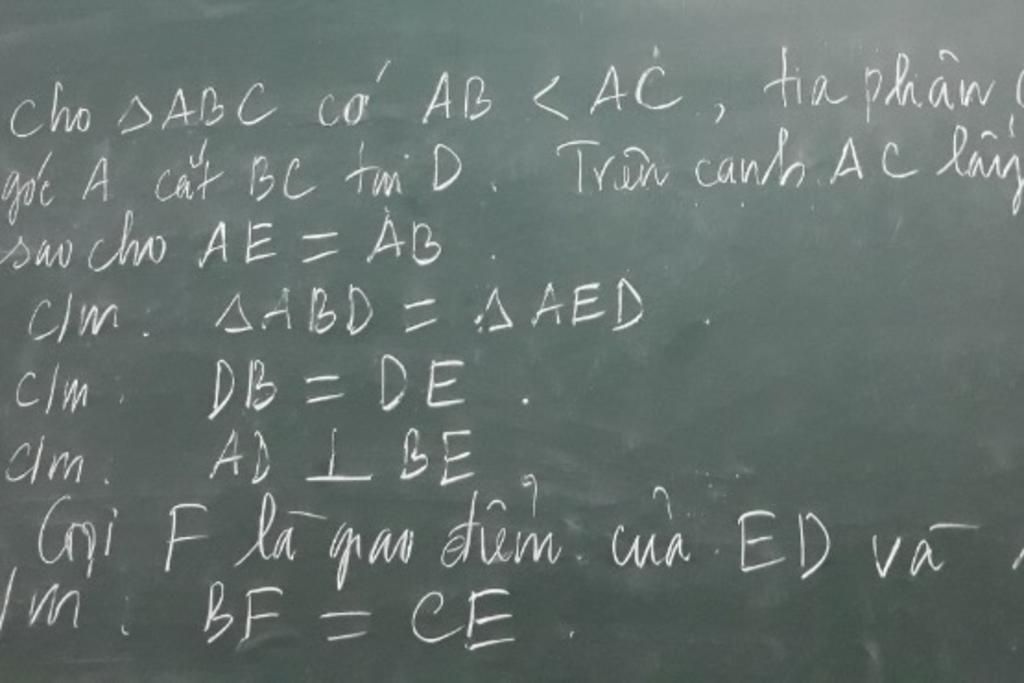 Cho △ABC có AB < AC, tia phân
góc A cắt BC tại D. Trên cạnh AC lấy
sao cho AE = AB.
c/m: △ABD = △AED.
c/m: DB = DE.
c/m. AD ⊥ BE
Gọi F là giao điểm của ED và
/m: BF = CE.